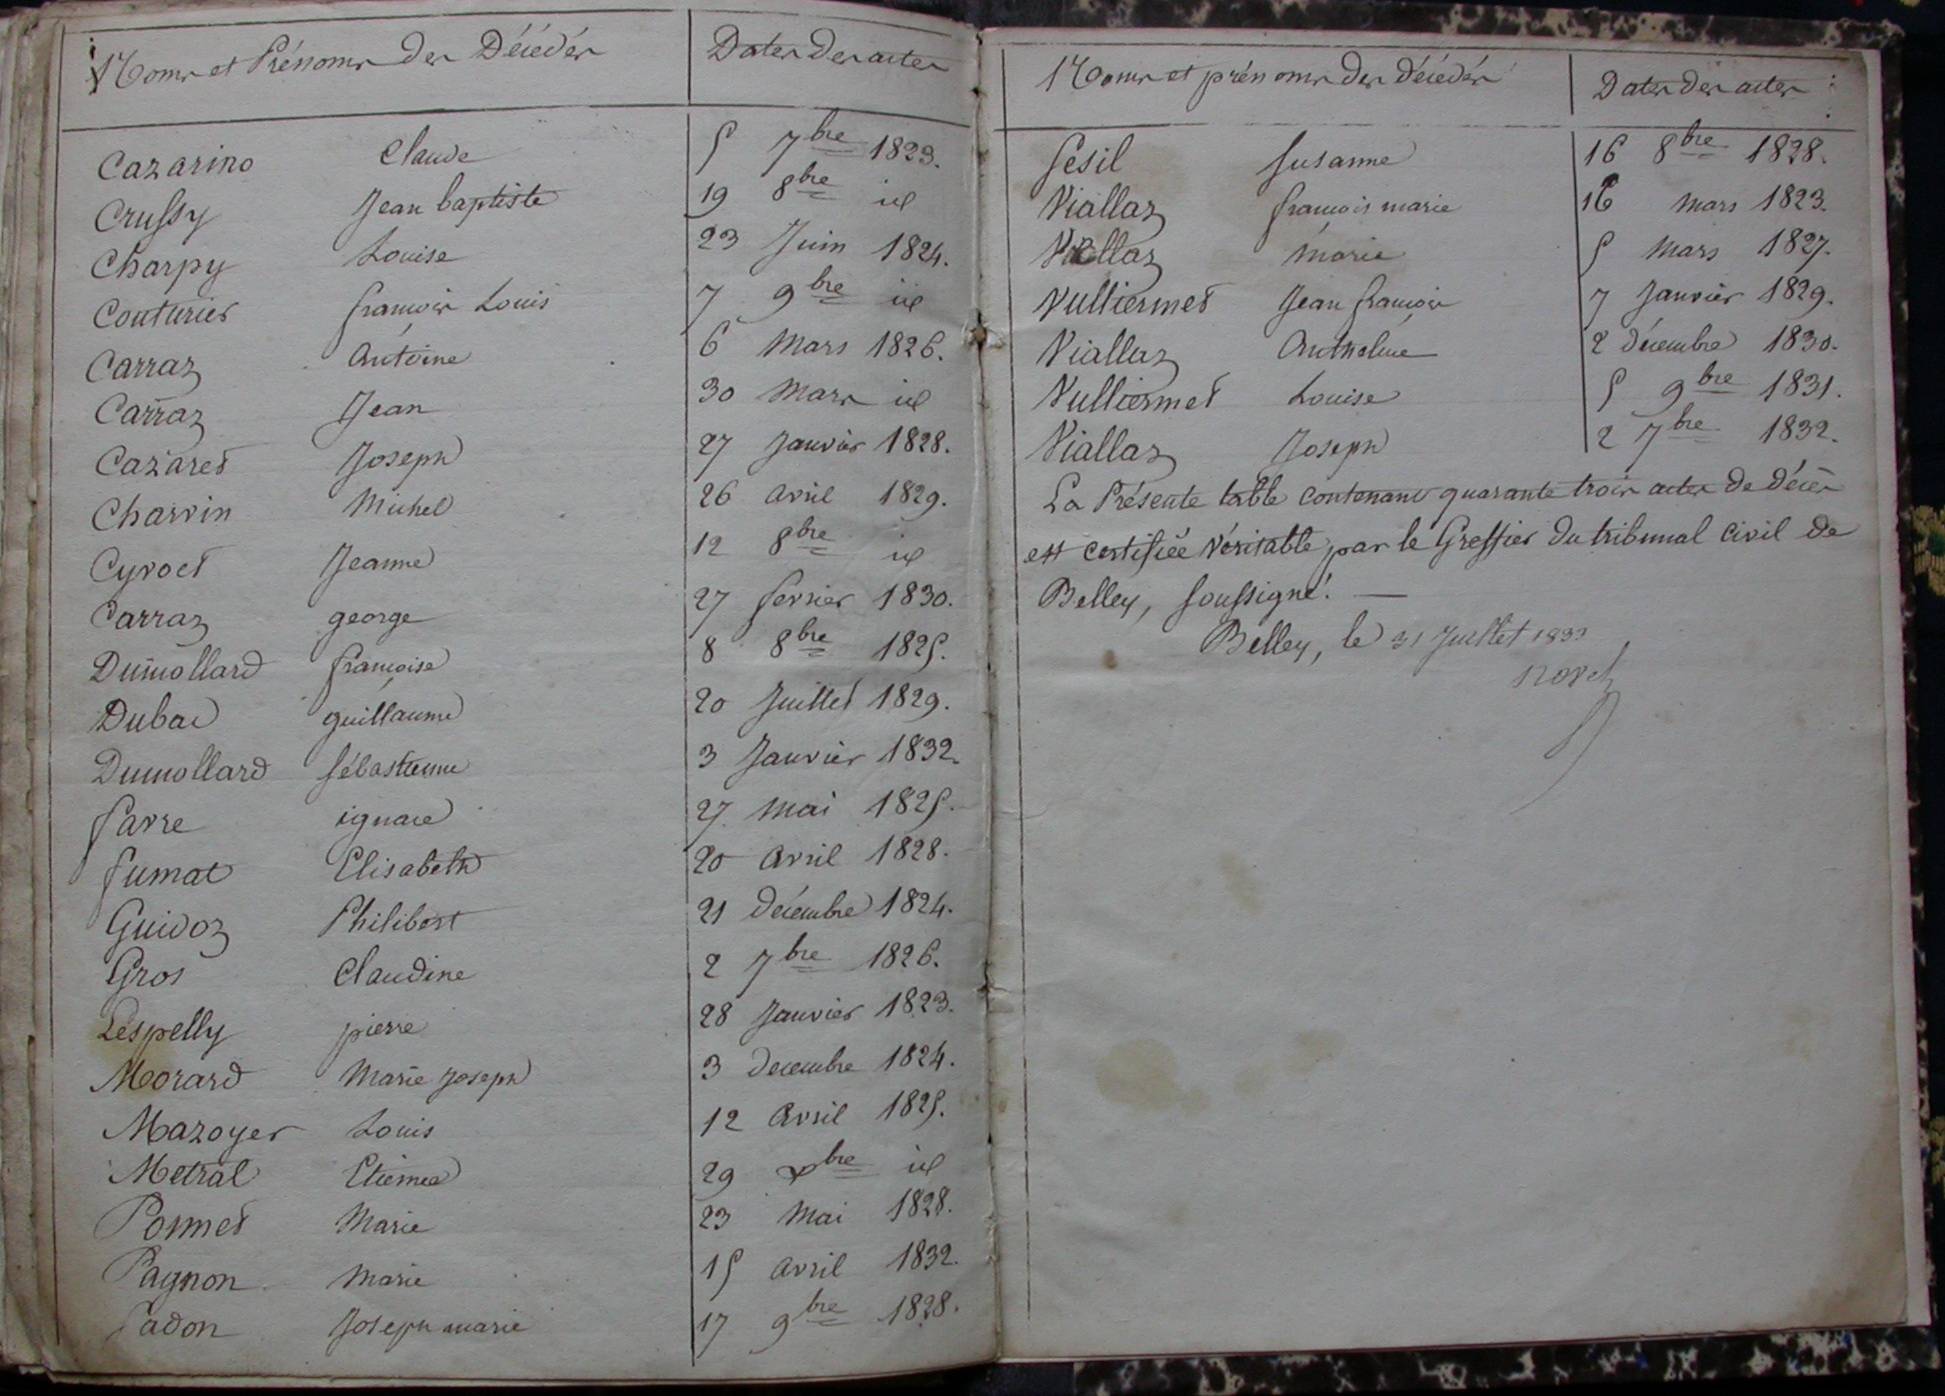 Noms et Prénoms des Décédés Dates des actes
Cazarino Claude 5 7bre 1823.
Crussy Jean baptiste 19 8bre id
Charpy Louise 23 Juin 1824.
Couturier françois Louis 7 9bre id
Carraz Antoine 6 Mars 1826.
Carraz Jean 30 Mars id
Cazaret Joseph 27 Janvier 1828.
Charvin Michel 26 avril 1829.
Cyvoct Jeanne 12 8bre id
Carraz george 27 fevrier 1830.
Dumollard françoise 8 8bre 1825.
Dubac guillaume 20 Juillet 1829.
Dumollard Sébastienne 3 Janvier 1832.
favre ignace 27 Mai 1825.
fumat Elisabeth 20 avril 1828.
Guidoz Philibert 21 décembre 1824.
Gros Claudine 2 7bre 1826.
Lespelly pierre 28 Janvier 1823.
Morard Marie Joseph 3 decembre 1824.
Mazoyer Louis 12 avril 1825.
Metral Etienne 29 xbre id
Ponnet Marie 23 Mai 1828.
Pagnon Marie 15 avril 1832.
Padon Joseph marie 17 9bre 1828.
Noms et prénoms des décédés Dates des actes
Sesil Susanne 16 8bre 1828.
Viallaz françois marie 16 Mars 1823.
Viallaz Marie 5 Mars 1827.
Vulliermet Jean françois 7 Janvier 1829.
Viallaz Anthelme 2 décembre 1830.
Vulliermet Louise 5 9bre 1831.
Viallaz Joseph 2 7bre 1832.
La Présente table contenant quarante trois actes de décès
est certifiée véritable par le Greffier du tribunal civil de
Belley, soussigné. —
Belley, le 31 Juillet 1833